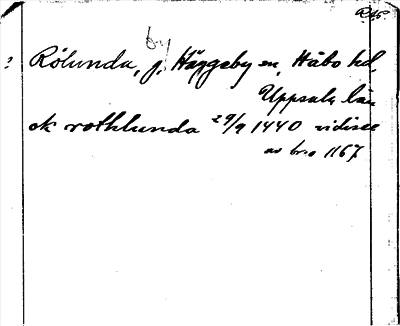 by
? Rölunda, j, Häggeby sn, Håbo hd,
Uppsala län
ok rothlunda 29/9 1440 vidisse
av br.o 1167